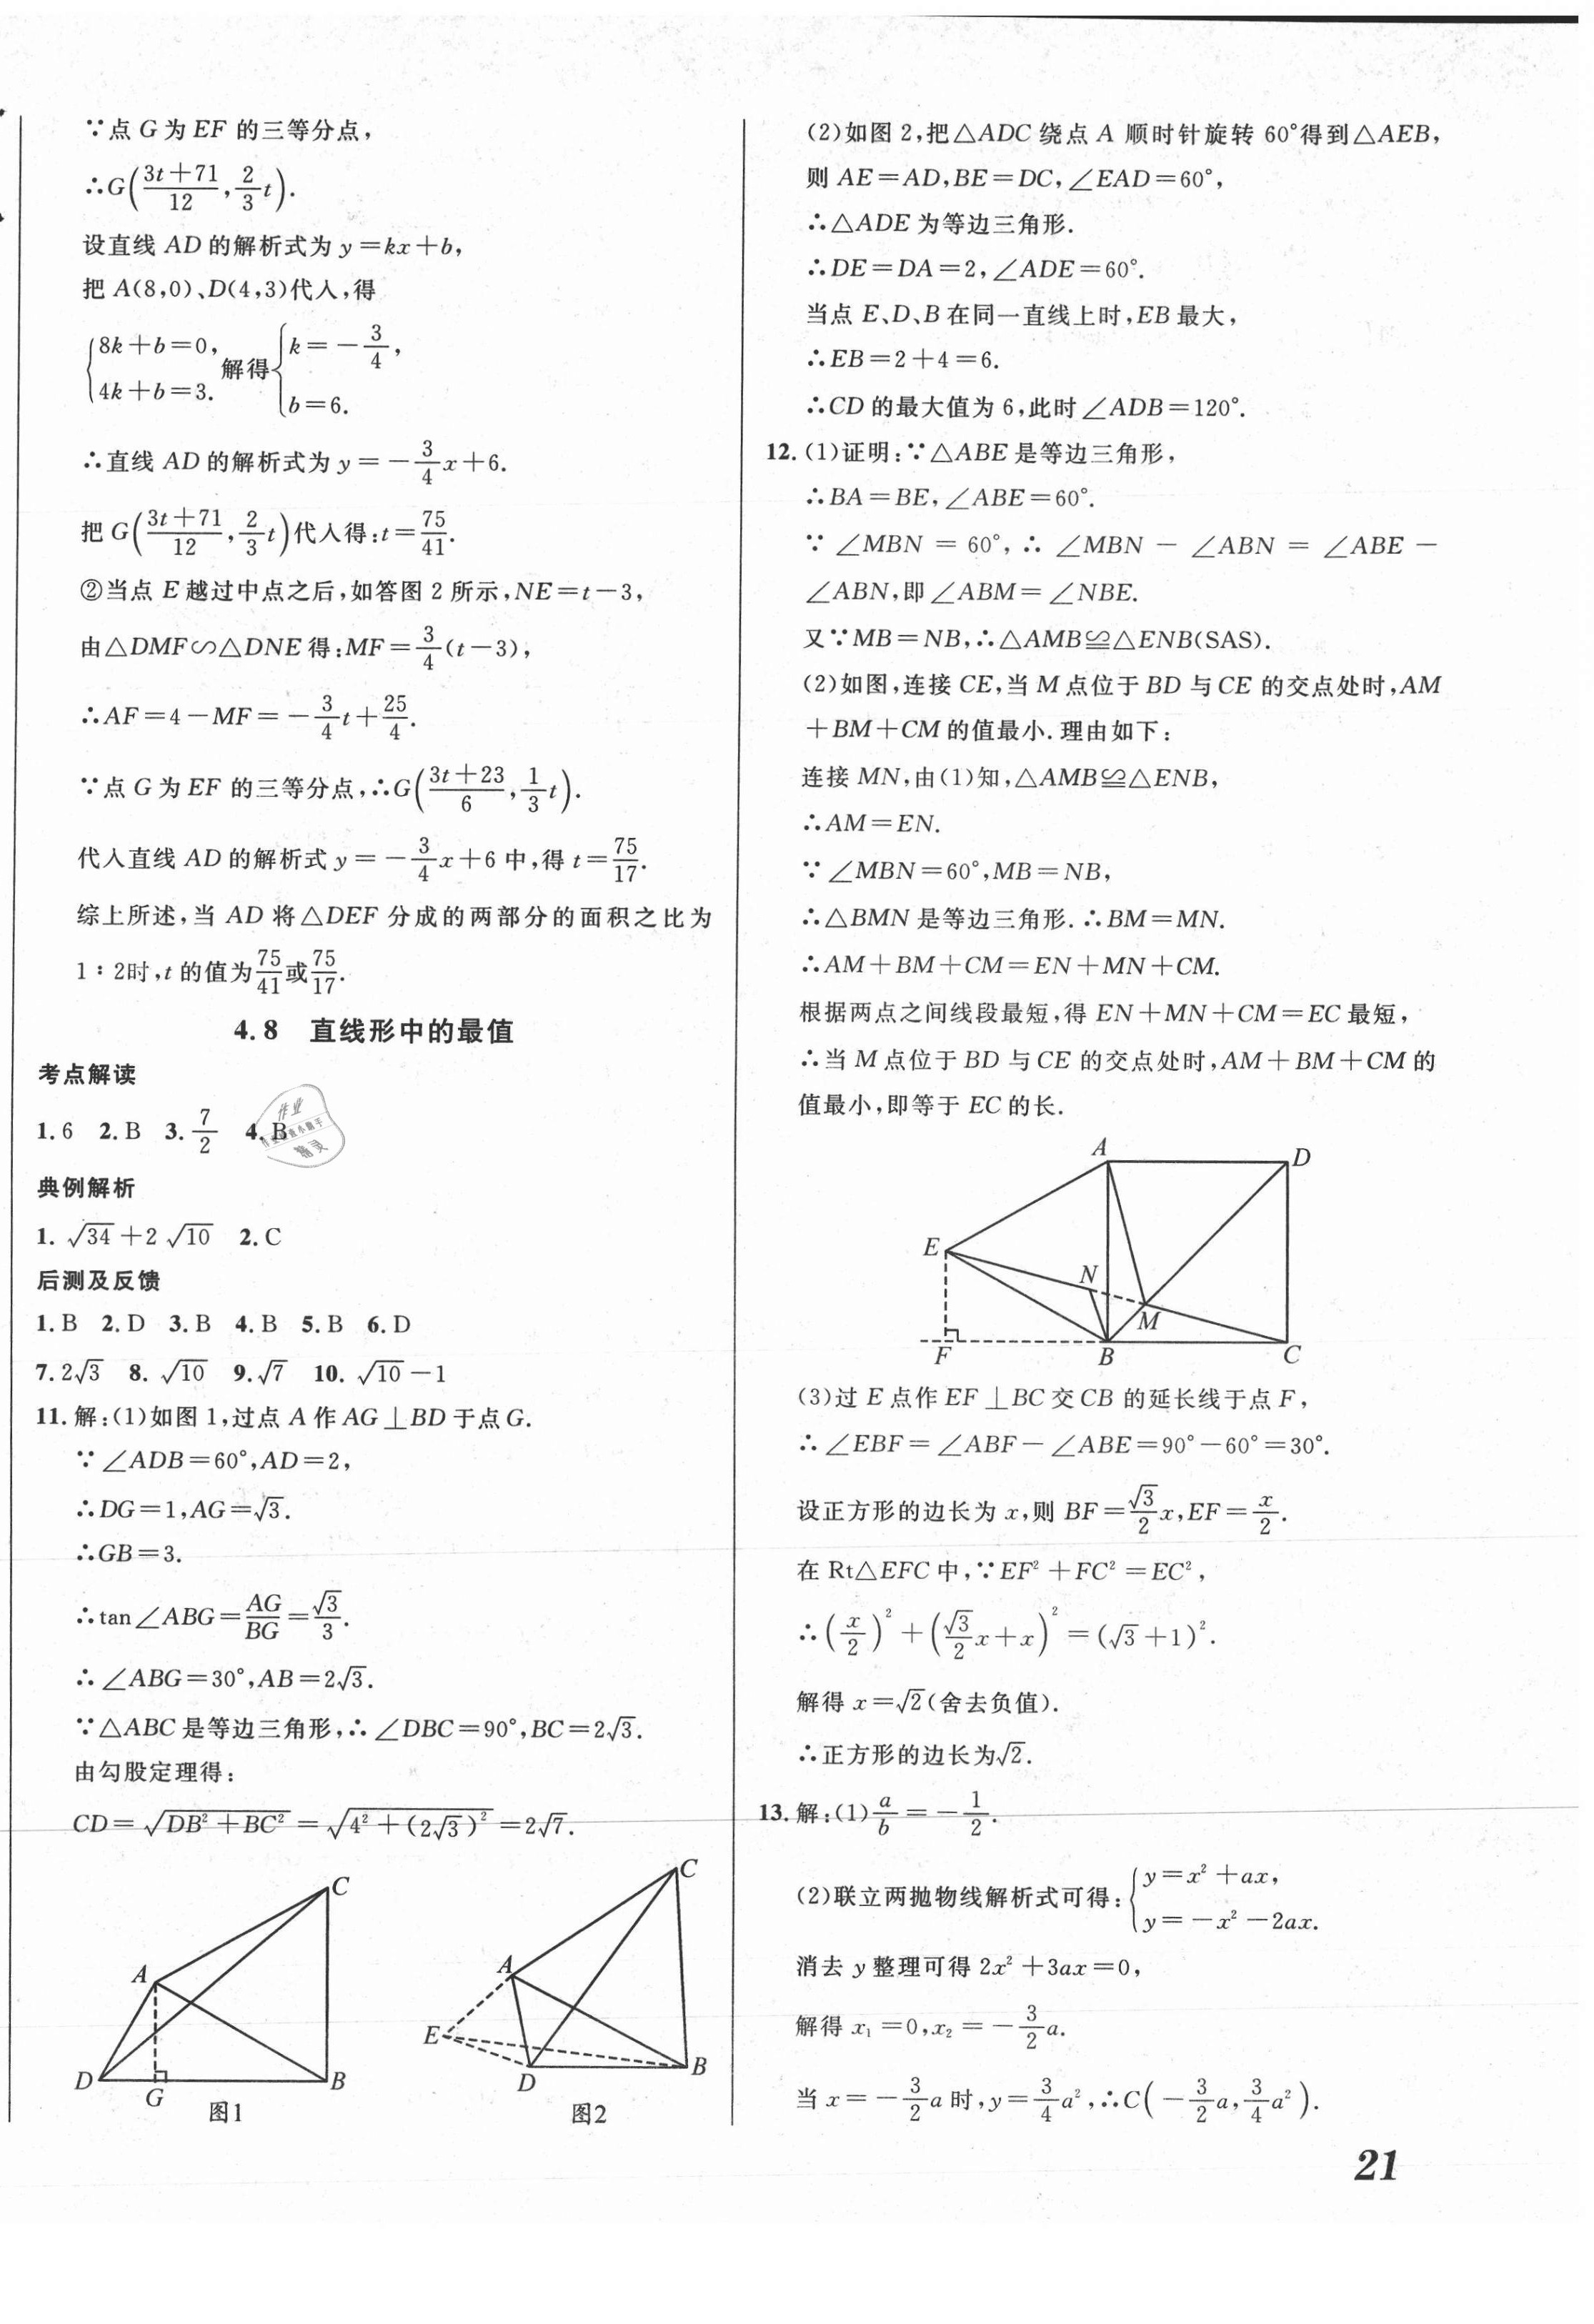 ∵点 G 为 EF 的三等分点，
∴G(\frac{3t+71}{12}, \frac{2}{3}t).
设直线 AD 的解析式为 y=kx+b，
把 A(8,0)、D(4,3)代入，得
{8k+b=0, 4k+b=3. 解得{k=-\frac{3}{4}, b=6.
∴直线 AD 的解析式为 y=-\frac{3}{4}x+6.
把 G(\frac{3t+71}{12}, \frac{2}{3}t)代入得：t=\frac{75}{41}.
②当点 E 越过中点之后，如答图 2 所示，NE=t-3，
由△DMF∽△DNE 得：MF=\frac{3}{4}(t-3)，
∴AF=4-MF=-\frac{3}{4}t+\frac{25}{4}.
∵点 G 为 EF 的三等分点，∴G(\frac{3t+23}{6}, \frac{1}{3}t).
代入直线 AD 的解析式 y=-\frac{3}{4}x+6 中，得 t=\frac{75}{17}.
综上所述，当 AD 将△DEF 分成的两部分的面积之比为
1∶2时，t 的值为\frac{75}{41}或\frac{75}{17}.
4.8 直线形中的最值
考点解读
1.6 2.B 3.\frac{7}{2} 4.B
典例解析
1. √34+2√10 2.C
后测及反馈
1.B 2.D 3.B 4.B 5.B 6.D
7.2√3 8. √10 9.√7 10. √10-1
11.解：(1)如图 1，过点 A 作 AG⊥BD 于点 G.
∵∠ADB=60°,AD=2，
∴DG=1,AG=√3.
∴GB=3.
∴tan∠ABG=\frac{AG}{BG}=\frac{√3}{3}.
∴∠ABG=30°,AB=2√3.
∵△ABC 是等边三角形，∴∠DBC=90°,BC=2√3.
由勾股定理得：
CD=√(DB²+BC²)=√(4²+(2√3)²)=2√7.
C
A
D
G
B
图1
C
A
E
D
B
图2
(2)如图 2，把△ADC 绕点 A 顺时针旋转 60°得到△AEB，
则 AE=AD,BE=DC,∠EAD=60°，
∴△ADE 为等边三角形.
∴DE=DA=2,∠ADE=60°.
当点 E、D、B 在同一直线上时，EB 最大，
∴EB=2+4=6.
∴CD 的最大值为 6，此时∠ADB=120°.
12.(1)证明：∵△ABE 是等边三角形，
∴BA=BE,∠ABE=60°.
∵∠MBN=60°,∴∠MBN-∠ABN=∠ABE-
∠ABN，即∠ABM=∠NBE.
又∵MB=NB,∴△AMB≌△ENB(SAS).
(2)如图，连接 CE，当 M 点位于 BD 与 CE 的交点处时，AM
+BM+CM 的值最小.理由如下：
连接 MN，由(1)知，△AMB≌△ENB，
∴AM=EN.
∵∠MBN=60°,MB=NB，
∴△BMN 是等边三角形.∴BM=MN.
∴AM+BM+CM=EN+MN+CM.
根据两点之间线段最短，得 EN+MN+CM=EC 最短，
∴当 M 点位于 BD 与 CE 的交点处时，AM+BM+CM 的
值最小，即等于 EC 的长.
A
D
E
N
M
F
B
C
(3)过 E 点作 EF⊥BC 交 CB 的延长线于点 F，
∴∠EBF=∠ABF-∠ABE=90°-60°=30°.
设正方形的边长为 x，则 BF=\frac{√3}{2}x,EF=\frac{x}{2}.
在 Rt△EFC 中，∵EF²+FC²=EC²，
∴(\frac{x}{2})²+(\frac{√3}{2}x+x)²=(√3+1)².
解得 x=√2(舍去负值).
∴正方形的边长为√2.
13.解：(1)\frac{a}{b}=-\frac{1}{2}.
(2)联立两抛物线解析式可得：{y=x²+ax, y=-x²-2ax.
消去 y 整理可得 2x²+3ax=0，
解得 x₁=0,x₂=-\frac{3}{2}a.
当 x=-\frac{3}{2}a 时，y=\frac{3}{4}a²,∴C(-\frac{3}{2}a, \frac{3}{4}a²).
21